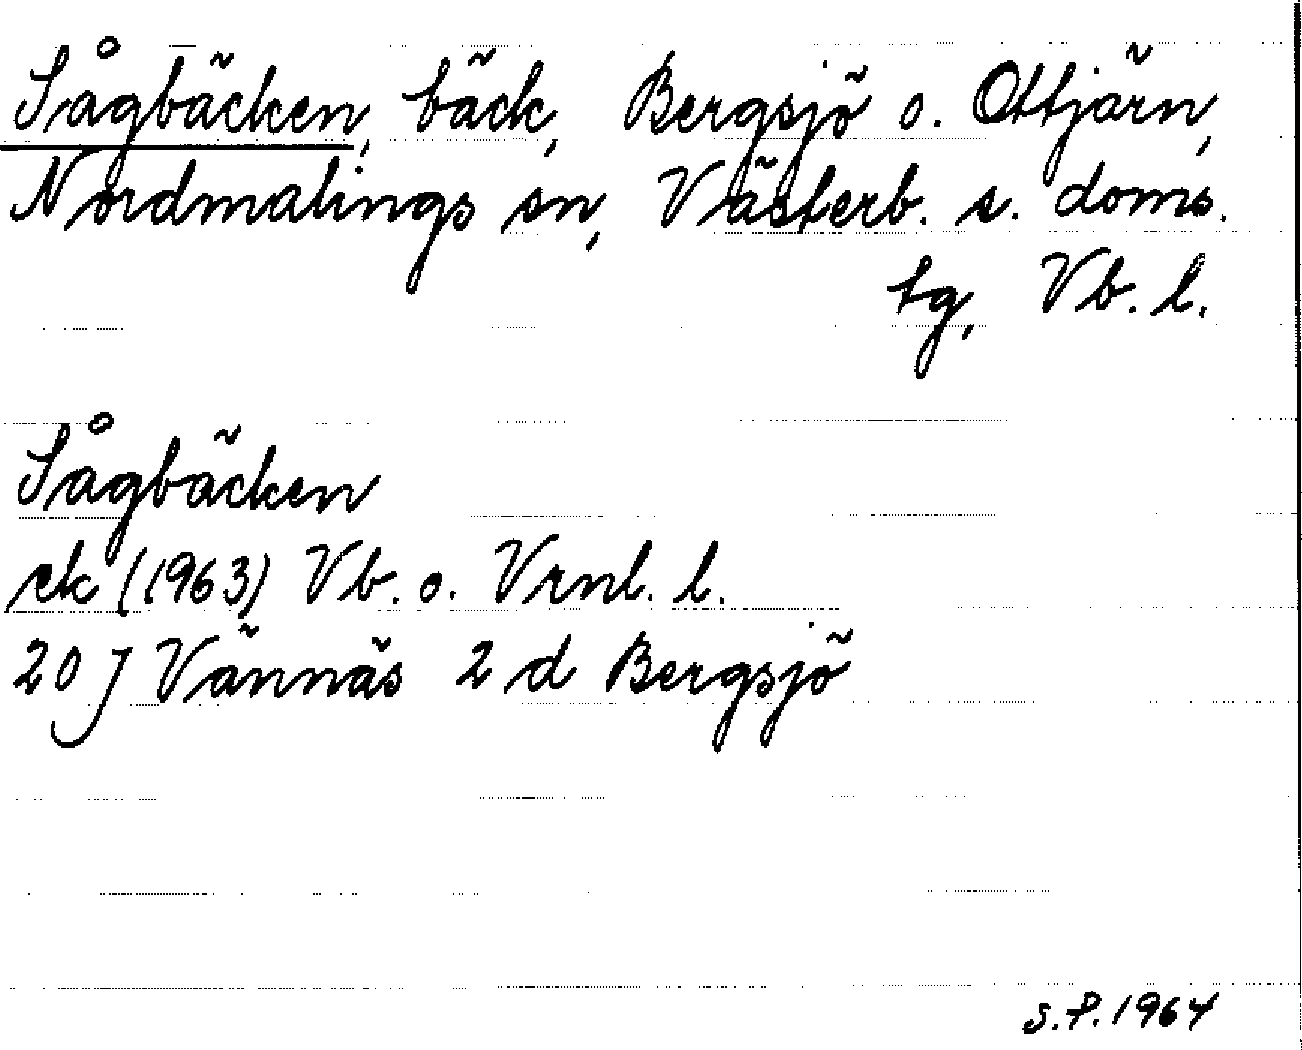 Sågbäcken, bäck, Bergsjö o. Ottjärn,
Nordmalings sn, Västerb. s. doms.
tg, Vb. l.
Sågbäcken
ek (1963) Vb. o. Vrnl. l.
20 J Vännäs 2 d Bergsjö
S.P. 1964